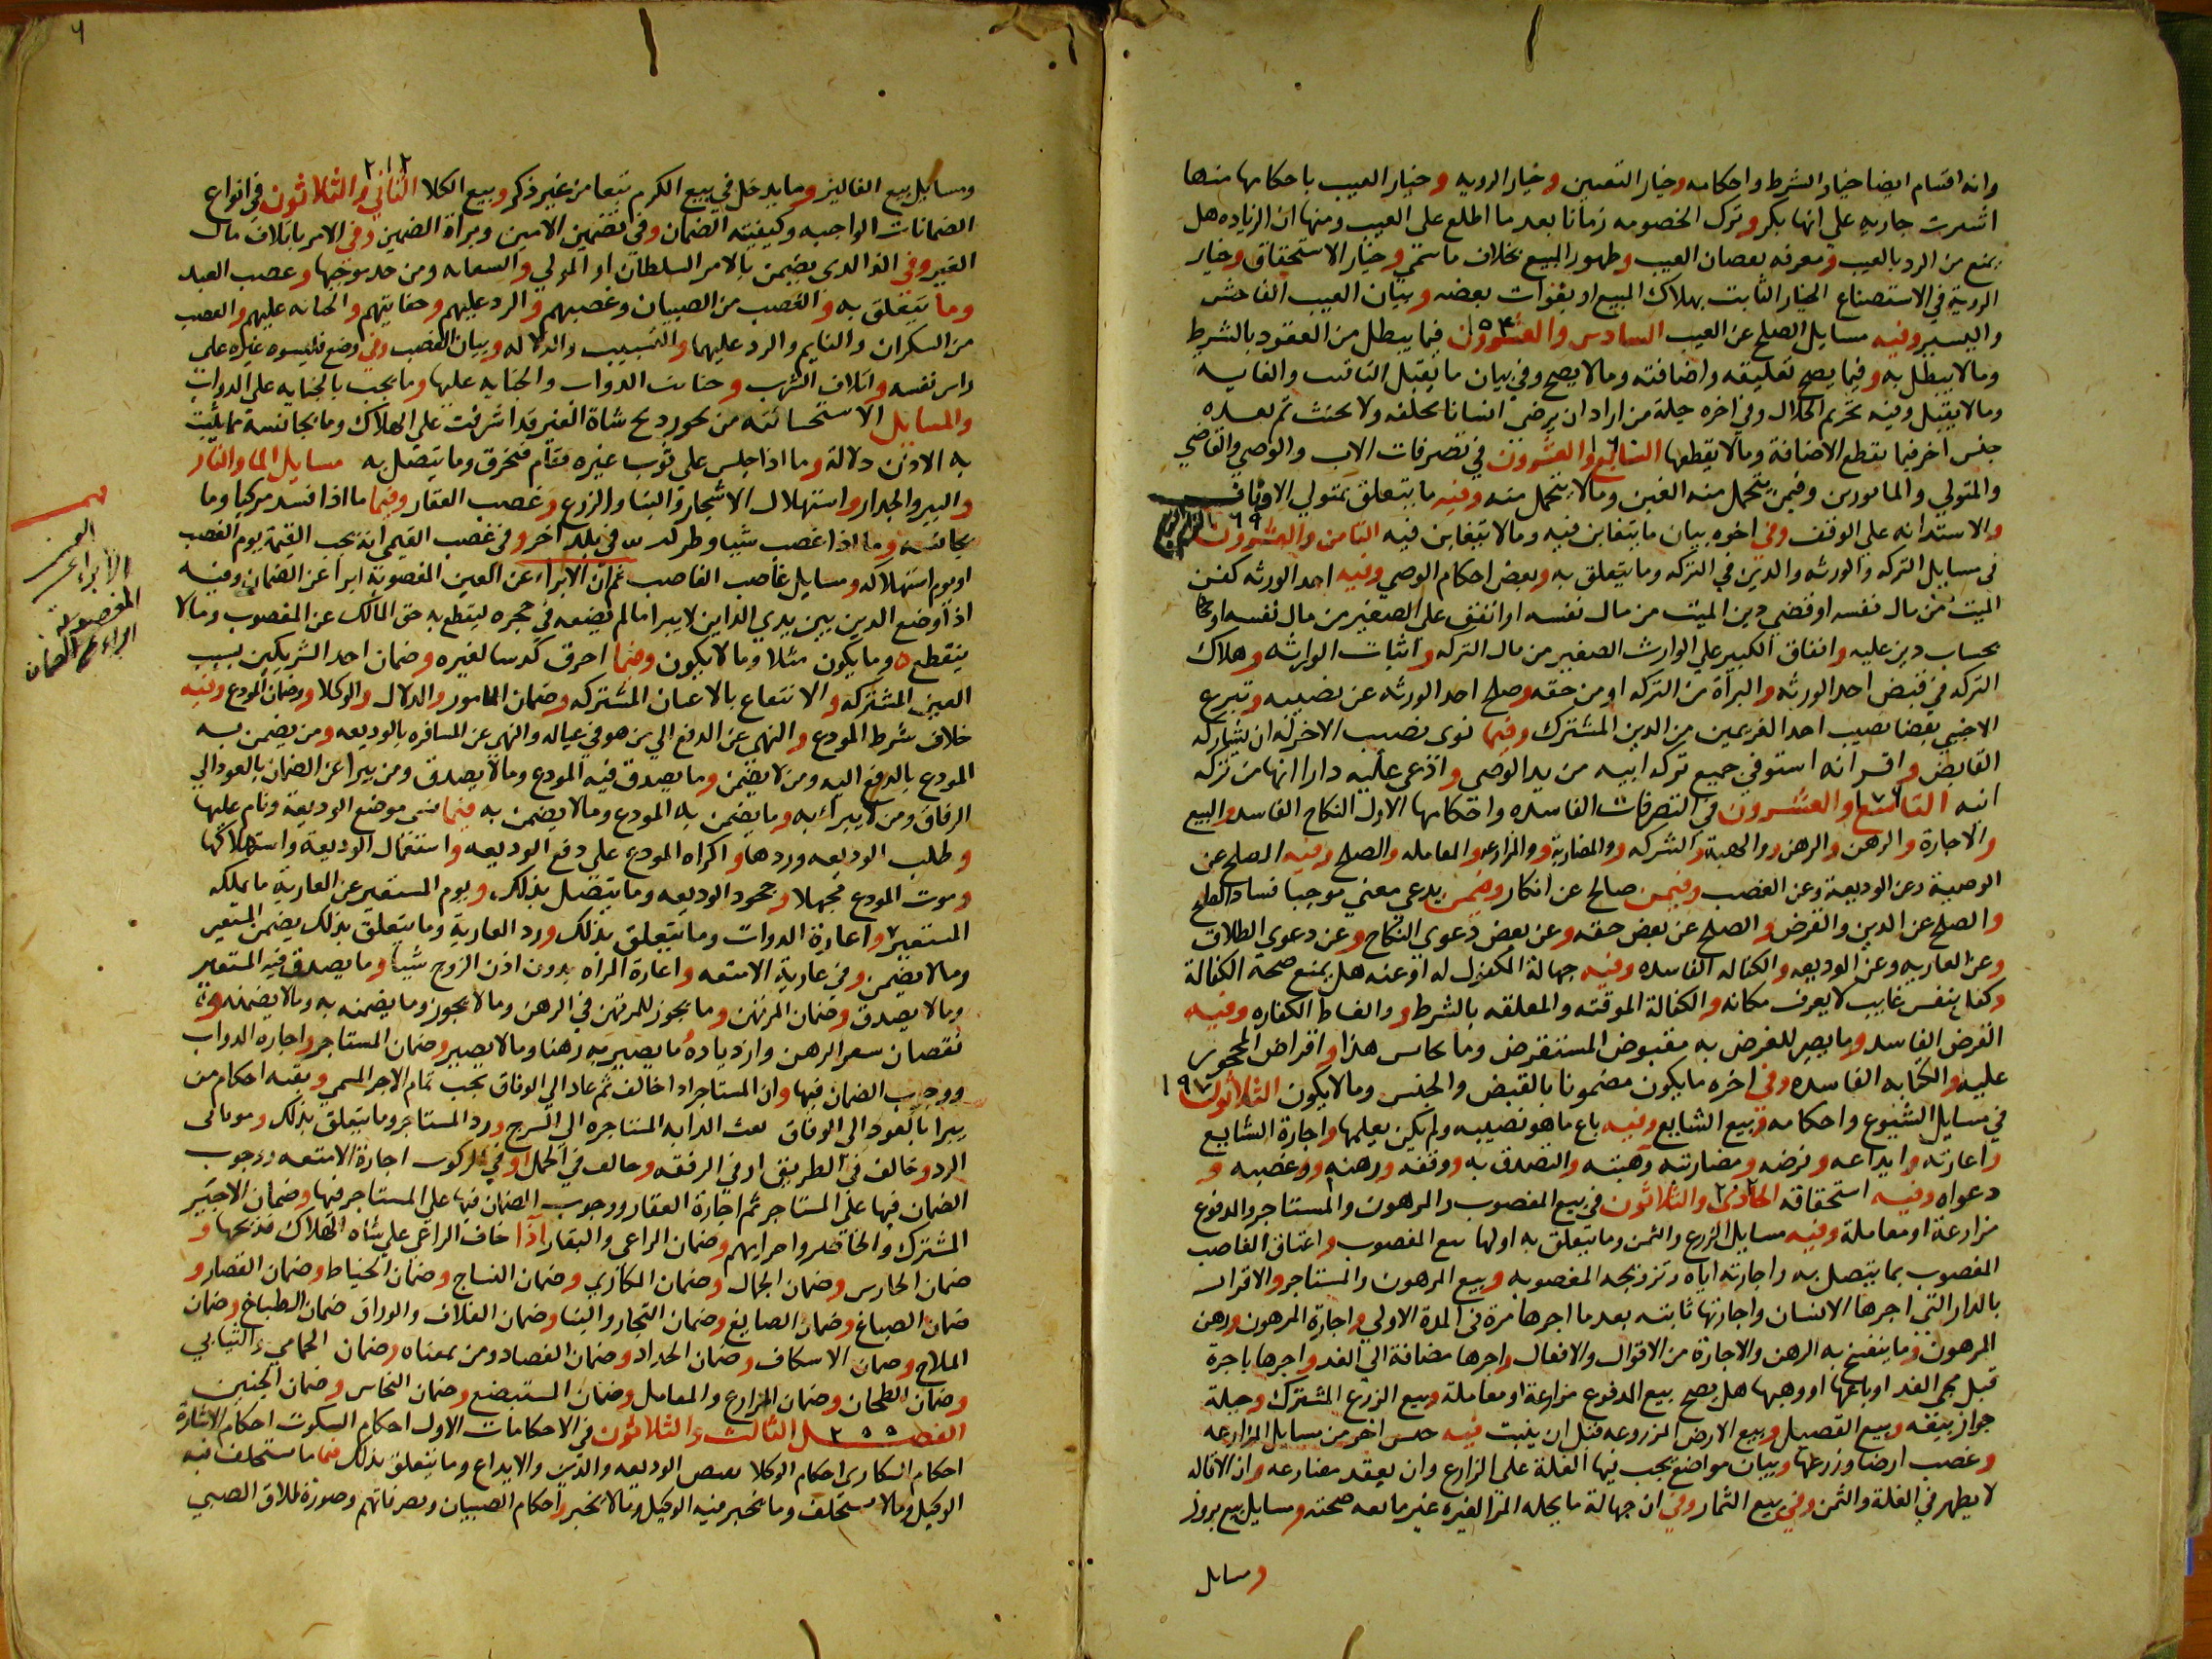 وانه اقسام ايضا خيار الشرط واحكامه وخيار التعيين وخيار الرويه وخيار العيب باحكامها منها
اشترت جاريه على انها بكر وترك الخصومه زمانا بعد ما اطلع على العيب ومنها ان الزياده هل
يمنع من الرد بالعيب ومعرفه نقصان العيب وظهور المبيع بخلاف ما سمى وخيار الاستحقاق وخيار
الروية في الاستصناع الخيار الثابت بهلاك المبيع او بفوات بعضه وبيان العيب الفاحش
واليسير وفيه مسايل الصلح عن العيب السادس والعشرون فيما يبطل من العقود بالشرط
وما لا يبطل به وفيما يصح تعليقه واضافته وما لا يصح وفي بيان ما يقبل التاقيت والغايه
وما لا يقبل وفيه تحريم الحلال وفي اخره حيلة من اراد ان يرضى انسانا بحلفه ولا يحنث ثم بعده
جنس اخر فيما يقطع الاضافة وما لا يقطعها السابع والعشرون في تصرفات الاب والوصي والقاضي
والمتولي والمامورين وفيمن يتحمل منه الغبن وما لا يتحمل منه وفيه ما يتعلق بمتولي الاوقاف
والاستدانه على الوقف وفي اخره بيان ما يتغابن فيه وما لا يتغابن فيه الثامن والعشرون
في مسايل التركه والورثه والدين في التركه وما يتعلق به وبعض احكام الوصي وفيه احد الورثه كفن
الميت من مال نفسه او قضى دين الميت من مال نفسه او انفق على الصغير من مال نفسه
بحساب دين عليه وانفاق الكبير على الوارث الصغير من مال التركه واثبات الوراثه وهلاك
التركه في قبض احد الورثه والبرأة من التركه او من حقه وصلح احد الورثه عن نصيبه وتبرع
الاجنبي بقضا نصيب احد الغريمين من الدين المشترك وفيما نوى نصيب الاخر له ان يشاركه
القابض واقر انه استوفى جميع تركه ابيه من يد الوصي وادعى عليه دارا انها من تركه
ابيه التاسع والعشرون في التصرفات الفاسده واحكامها الاول النكاح الفاسد والبيع
والاجارة والرهن والرهن والهبة والشركه والمضاربة والمزارعه والمعامله والصلح وفيه الصلح عن
الوصية وعن الوديعة وعن الغصب وفيمن صالح عن انكار وفيمن يدعي معنى موجبا فساد الصلح
والصلح عن الدين والقرض والصلح عن بعض حقه وعن بعض دعوى النكاح وعن دعوى الطلاق
وعن العاريه وعن الوديعه والكفاله الفاسده وفيه جهالة المكفول له او عنه هل يمنع صحة الكفالة
وكفل بنفس غايب لا يعرف مكانه والكفالة الموقته والمعلقه بالشرط والفاظ الكفاره وفيه
القرض الفاسد وما يصير للقرض به مقبوض المستقرض وما يجانس هذا واقراض المحجور
عليه والكتابه الفاسده وفي اخره ما يكون مضمونا بالقبض والجنس وما لا يكون الثلاثون ١٩٧
في مسايل الشيوع واحكامه وبيع الشايع وفيه باع ما هو نصيبه ولم يكن يعلمها واجارة الشايع
واعارته وايداعه وقرضه ومضاربته وهبته والتصدق به ووقفه ورهنه وغصبه و
دعواه وفيه استحقاقه الحادي والثلاثون في بيع المغصوب والمرهون والمستاجر والمدفوع
مزارعة او معاملة وفيه مسايل الزرع والثمن وما يتعلق به اولها بيع المغصوب واعتاق الغاصب
المغصوب بما يتصل به واجارته اياه وتزويجه المغصوبه وبيع المرهون والمستاجر والاقرار
بالدار التي اجرها الانسان واجارتها ثابته بعد ما اجرها مرة في المدة الاولى واجارة المرهون ورهن
المرهون وما ينفسخ به الرهن والاجارة من الاقوال والافعال واجرها مضافة الى الغد واجرها باجرة
قبل مجي الغد او باعها او وهبها هل يصح بيع المدفوع مزارعة او معاملة وبيع الزرع المشترك وحيلة
جواز بيعه وبيع القصيل وبيع الارض المزروعه قبل ان ينبت فيه جنس اخر من مسايل المزارعه
وغصب ارضا وزرعها وبيان مواضع يجب فيها الغلة على الزارع وان يعقد مضارعه وان الاقاله
لا يظهر في الغلة والثمن وفي بيع الثمار وفي ان جهالة ما يجله المزا لغيره غير مانعه صحته ومسايل بيع بروز
ومسايل
٦
ومسايل بيع الفاليز وما يدخل في بيع الكرم تبعا من غير ذكر وبيع الكلا الثاني والثلاثون في انواع
٢١٢
الضمانات الواجبه وكيفيته الضمان وفي تضمين الامين وبراة الضمين وفي الامر باتلاف مال
الغير وفي القوا لدى يضمن بالامر السلطان او المولى والسعايه ومن حد بوجها وغصب العبد
وما يتعلق به والغصب من الصبيان وغصبهم والرد عليهم وجنايتهم والجنايه عليهم والغصب
من السكران والنايم والرد عليهما والتسبيب والدلاله وبيان الغصب وفي وضع قلنسوه غيره على
راس نفسه واتلاف الشرب وجنايت الدواب والجنايه عليها وما يجب بالجنايه على الدواب
والمسايل الاستحسانيه من نحو ذبح شاة الغير قد اشرفت على الهلاك وما يجانسه مما يثبت
به الاذن دلالة وما اذا جلس على ثوب غيره فقام فتخرق وما يتصل به مسايل الما والنار
والبير والجدار واستهلال الاشجار والبنا والزرع وغصب العقار وفيما ما اذا افسد مركبا وما
يجانسه وما اذا غصب شيا وطرلد س في بلد اخر وفي غصب القيمي انه يجب القيمة يوم الغصب
او يوم استهلاكه ومسايل غاصب الغاصب ثم ان الابراء عن العين المغصوبة ابرا عن الضمان وفيه
اذا وضع الدين بين يدي الداين لا يبرا مالم يضعه في حجره ليقطع به حق المالك عن المغصوب وما لا
ينقطع وما يكون مثلا وما لا يكون وفيما احرق كدسا لغيره وضمان احد الشريكين بسبب
العين المشتركه والانتفاع بالاعيان المشتركه وضمان المامور والدلال والوكلا وضمان المودع وفيه
خلاف شرط المودع والنهي عن الدفع الى من هو في عياله والنهي عن المسافره بالوديعه ومن يضمن به
المودع بالدفع اليه ومن لا يضمن وما يصدق فيه المودع وما لا يصدق ومن يبرا عن الضمان بالعود الى
الوفاق ومن لا يبرأ به وما يضمن به المودع وما لا يضمن به فيما نسى موضع الوديعة ونام عليها
وطلب الوديعه وردها واكراه المودع على دفع الوديعه واستعمال الوديعة واستهلاكها
وموت المودع مجهلا وجحود الوديعه وما يتصل بذلك وبوم المستعير عن العارية ما يملكه
المستعير واعارة الدواب وما يتعلق بذلك ورد العارية وما يتعلق بذلك يضمن المستعير
وما لا يضمن وفي عارية الامتعه واعارة المراه بدون اذن الزوج شيا وما يصدق فيه المستعير
وما لا يصدق وضمان المرتهن وما يجوز للمرتهن في الرهن وما لا يجوز وما يضمنه به وما لا يضمنه
نقصان سعر الرهن وازدياده وما يصير به رهنا وما لا يصير وضمان المستاجر واجاره الدواب
ووجوب الضمان فيها وان المستاجر اذا خالف ثم عاد الى الوفاق يجب تمام الاجر المسمى وبقيه احكام من
يبرا بالعود الى الوفاق بعث الدابه المستاجره الى السرج ورد المستاجر وما يتعلق بذلك ومونات
الرد وخالف في الطريق او في الرفقه وخالف في الحمل او في الركوب اجارة الامتعه ووجوب
الضمان فيها على المستاجر ثم اجارة العقار ووجوب الضمان فيها على المستاجر فيها وضمان الاجير
المشترك والخاص واجرايهم وضمان الراعي والبقار اذا خاف الراعي على شاه الهلاك فذبحها و
ضمان الحارس وضمان الجمال وضمان المكاري وضمان النساج وضمان الخياط وضمان القصار و
ضمان الصباغ وضمان الصايغ وضمان النجار والبنا وضمان الغلاف والوراق ضمان الطباخ وضمان
الملاح وضمان الاسكاف وضمان الحداد وضمان الفصاد ومن بمعناه وضمان الحمامي والثيابي
وضمان الطحان وضمان المزارع والمعامل وضمان المستبضع وضمان النحاس وضمان الجنين
الفصل الثالث والثلاثون في الاحكامات الاول احكام السكوت احكام الاشارة
٢٥٥
احكام السكارى احكام الوكلا بقبض الوديعه والدين والايداع وما يتعلق بذلك فيما ما يستحلف فيه
الوكيل وما لا يستحلف وما يخير فيه الوكيل وما لا يخير واحكام الصبيان وتصرفاتهم وصورة طلاق الصبي
الابراء عن
العين
المغصوبة
ابراء عن الضمان